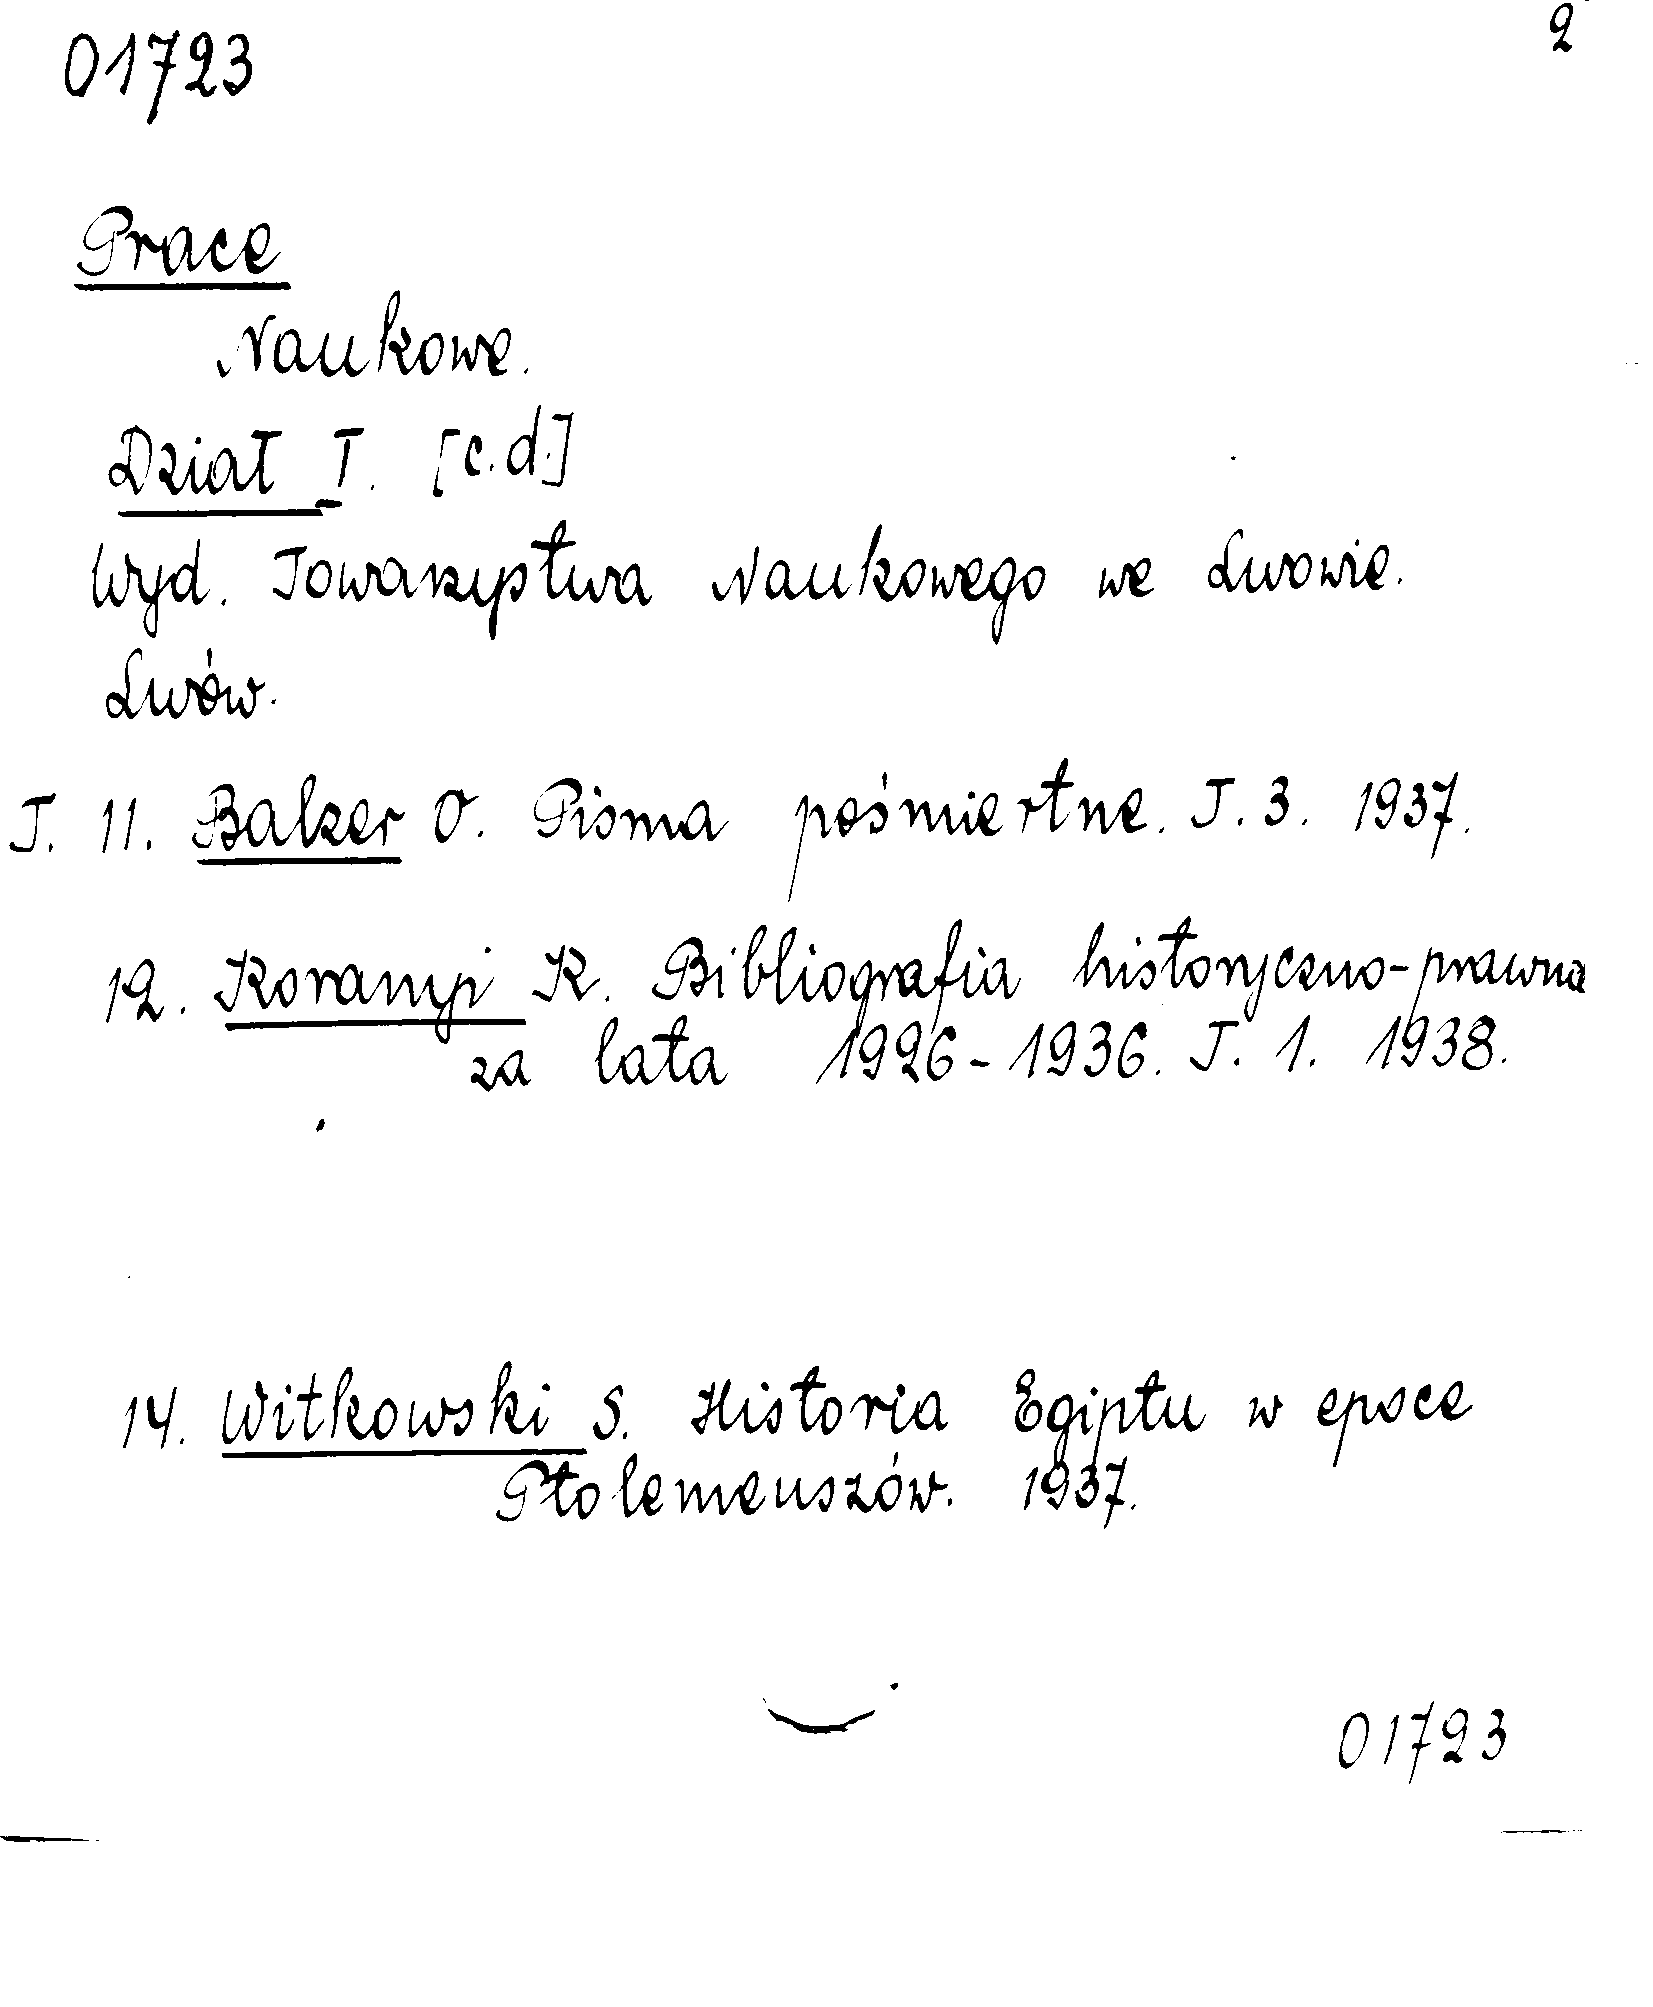 2
01723
Prace
Naukowe.
Dział I. [c.d.]
Wyd. Towarzystwa Naukowego we Lwowie.
Lwów.
T. 11. Balzer O. Pisma pośmiertne. T. 3. 1937.
12. Koranyi K. Bibliografia historyczno-prawna
za lata 1926-1936. T. 1. 1938.
14. Witkowski S. Historia Egiptu w epoce
Ptolemeuszów. 1937.
01723